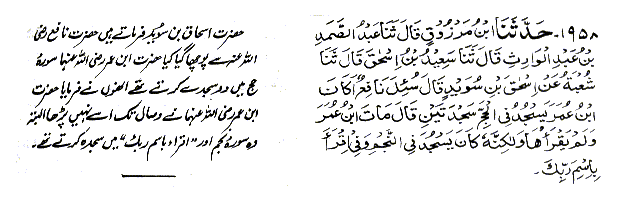 ۱۹۵۸- حَدَّثَنَا ابْنُ مَرْزُوْقٍ قَالَ ثَنَا عَبْدُ الصَّمَدِ
بْنُ عَبْدِ الْوَارِثِ قَالَ ثَنَا سَعِيْدُ بْنُ اِسْحٰقَ قَالَ ثَنَا
شُعْبَةُ عَنْ اِسْحٰقَ بْنِ سُوَيْدٍ قَالَ سُئِلَ نَافِعٌ اَكَانَ
ابْنُ عُمَرَ يَسْجُدُ فِي الْحَجِّ سَجْدَتَيْنِ قَالَ مَاتَ ابْنُ عُمَرَ
وَلَمْ يَقْرَأْهَا وَلٰكِنَّهٗ كَانَ يَسْجُدُ فِي النَّجْمِ وَفِيْ اِقْرَأْ
بِاسْمِ رَبِّكَ۔
حضرت اسحاق بن سوید فرماتے ہیں حضرت نافع رضی
اللہ عنہ سے پوچھا گیا کیا حضرت ابن عمر رضی اللہ عنہما سورۂ
حج میں دو سجدے کرتے تھے انھوں نے فرمایا حضرت
ابن عمر رضی اللہ عنہما نے وصال تک اسے نہیں پڑھا البتہ
وہ سورۂ نجم اور "اقراء باسم ربک" میں سجدہ کرتے تھے۔